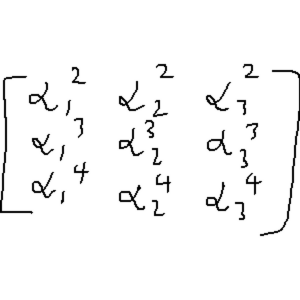 α₁² α₂² α₃²
α₁³ α₂³ α₃³
α₁⁴ α₂⁴ α₃⁴